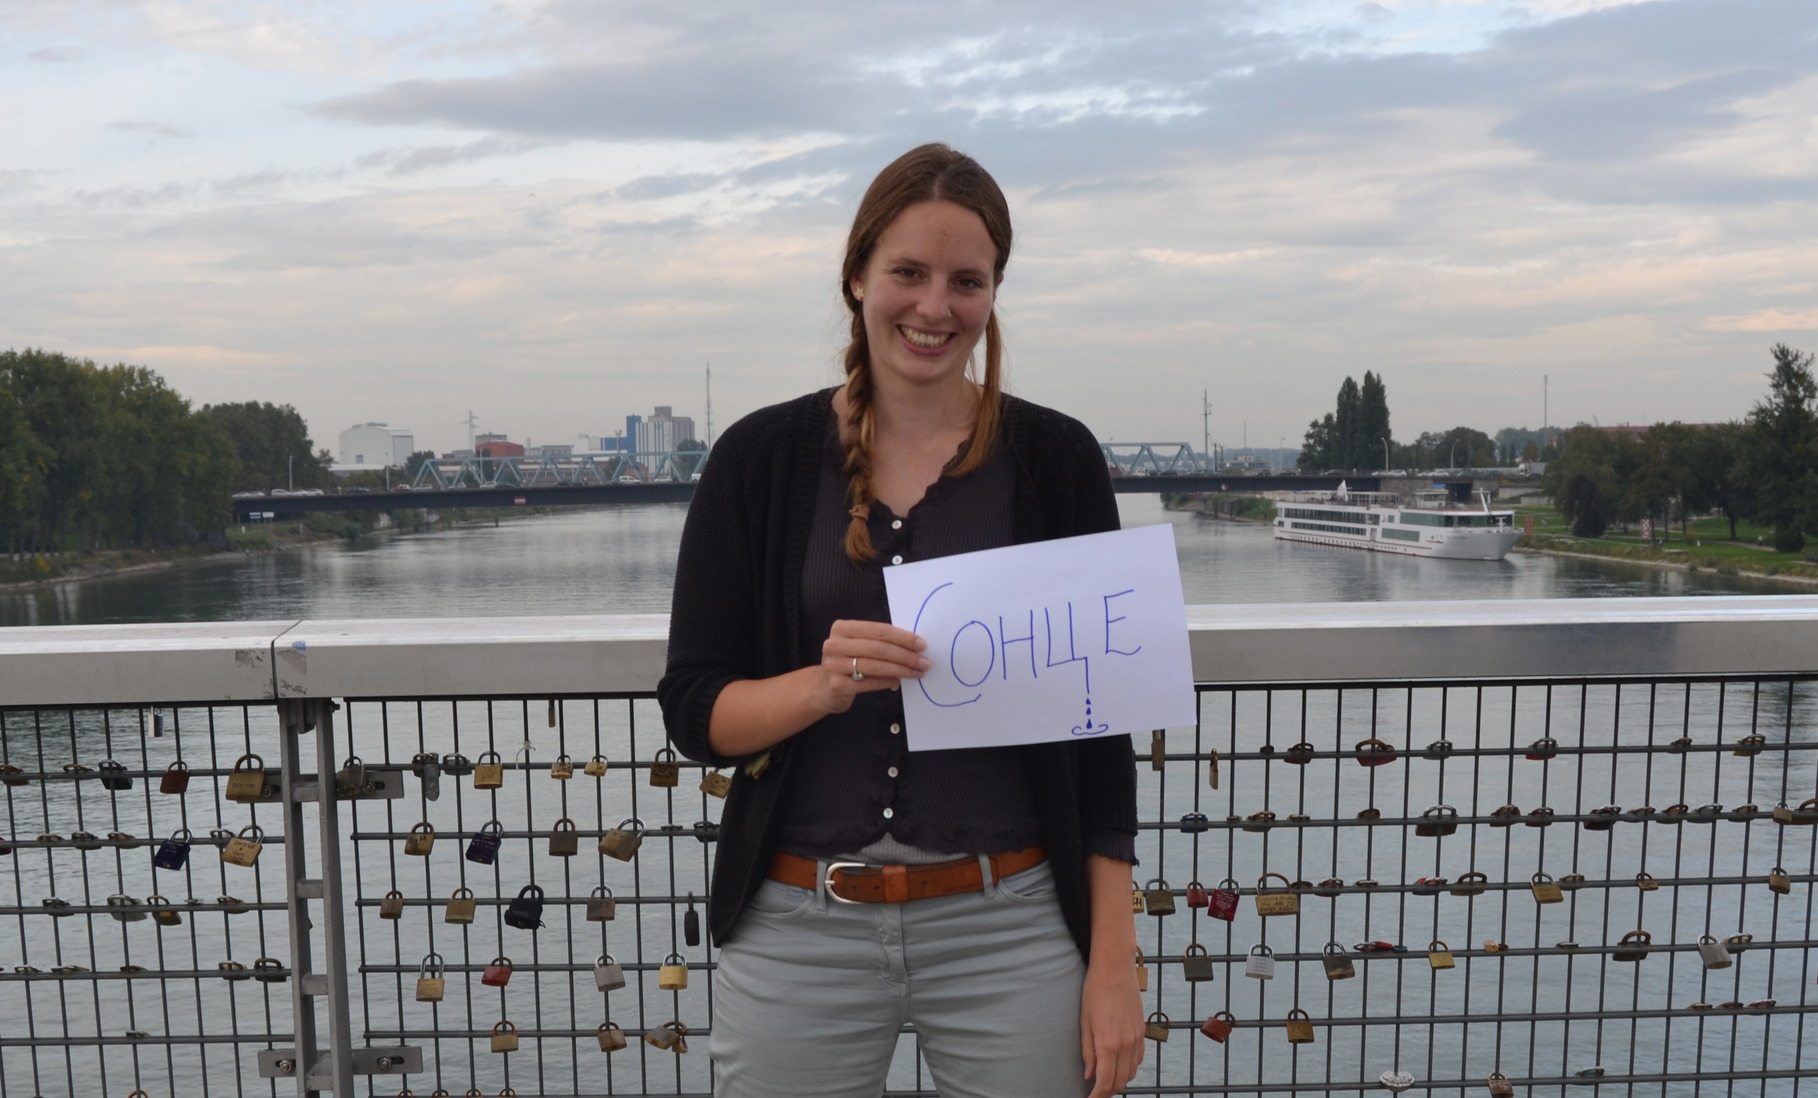 СОНЦЕ